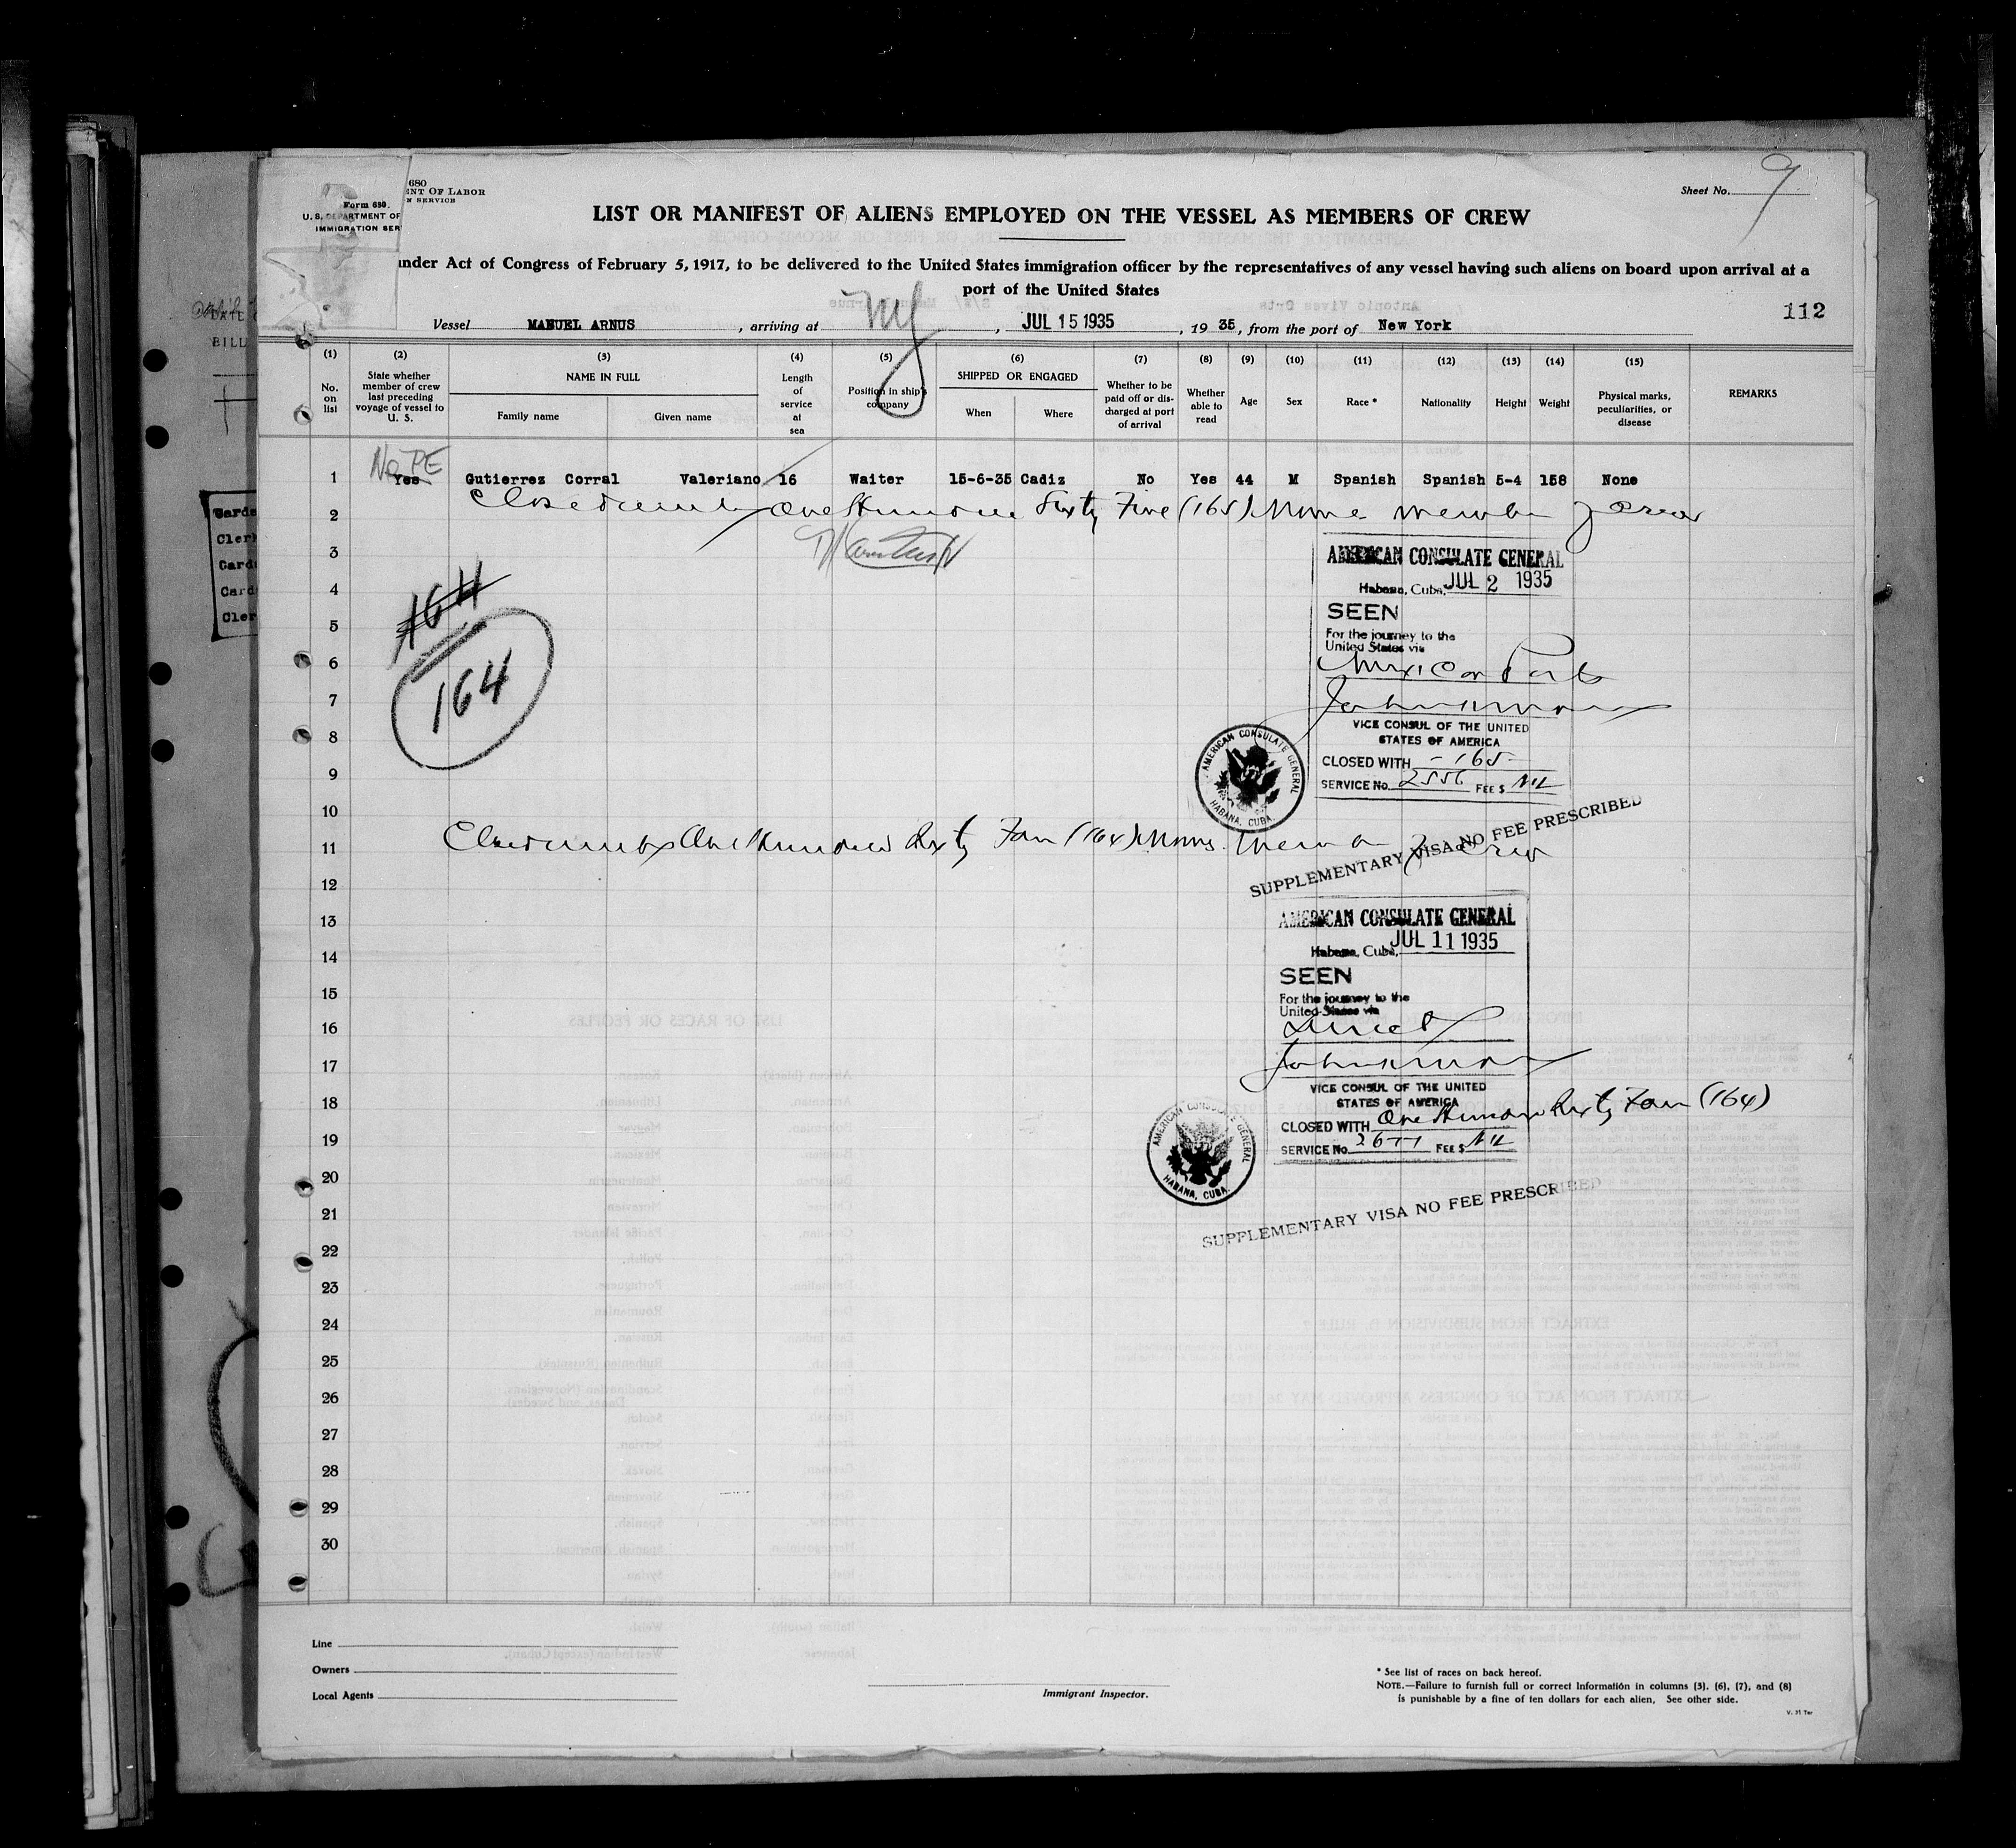 680
ENT OF LABOR
N SERVICE
Form 680.
U. S. DEPARTMENT OF
IMMIGRATION SER
Sheet No. 9
LIST OR MANIFEST OF ALIENS EMPLOYED ON THE VESSEL AS MEMBERS OF CREW
under Act of Congress of February 5, 1917, to be delivered to the United States immigration officer by the representatives of any vessel having such aliens on board upon arrival at a
port of the United States
112
Vessel MANUEL ARNUS, arriving at NY, JUL 15 1935, 19 35, from the port of New York
(1) (2) (3) (4) (5) (6) (7) (8) (9) (10) (11) (12) (13) (14) (15)
No. on list
State whether member of crew last preceding voyage of vessel to U. S.
NAME IN FULL
Family name
Given name
Length of service at sea
Position in ship's company
SHIPPED OR ENGAGED
When
Where
Whether to be paid off or discharged at port of arrival
Whether able to read
Age
Sex
Race *
Nationality
Height
Weight
Physical marks, peculiarities, or disease
REMARKS
No PE
1 Yes Gutierrez Corral Valeriano 16 Waiter 15-6-35 Cadiz No Yes 44 M Spanish Spanish 5-4 158 None
2 Closed with One Hundred Sixty Five (165) Names members of Crew
3
4
5
6
7
8
9
10
11
12
13
14
15
16
17
18
19
20
21
22
23
24
25
26
27
28
29
30
164
164
AMERICAN CONSULATE GENERAL
Habana, Cuba, JUL 2 1935
SEEN
For the journey to the
United States via
Mexican Ports
VICE CONSUL OF THE UNITED
STATES OF AMERICA
CLOSED WITH - 165 -
SERVICE No. 2556 FEE $ Nil
AMERICAN CONSULATE GENERAL
HABANA, CUBA.
SUPPLEMENTARY VISA NO FEE PRESCRIBED
Closed with One Hundred Sixty Four (164) Names Members of Crew
AMERICAN CONSULATE GENERAL
Habana, Cuba, JUL 11 1935
SEEN
For the journey to the
United States via
Direct
VICE CONSUL OF THE UNITED
STATES OF AMERICA
CLOSED WITH One Hundred Sixty Four (164)
SERVICE No. FEE $ Nil
AMERICAN CONSULATE GENERAL
HABANA, CUBA.
SUPPLEMENTARY VISA NO FEE PRESCRIBED
Line
Owners
Local Agents
Immigrant Inspector.
* See list of races on back hereof.
NOTE.—Failure to furnish full or correct information in columns (3), (6), (7), and (8)
is punishable by a fine of ten dollars for each alien. See other side.